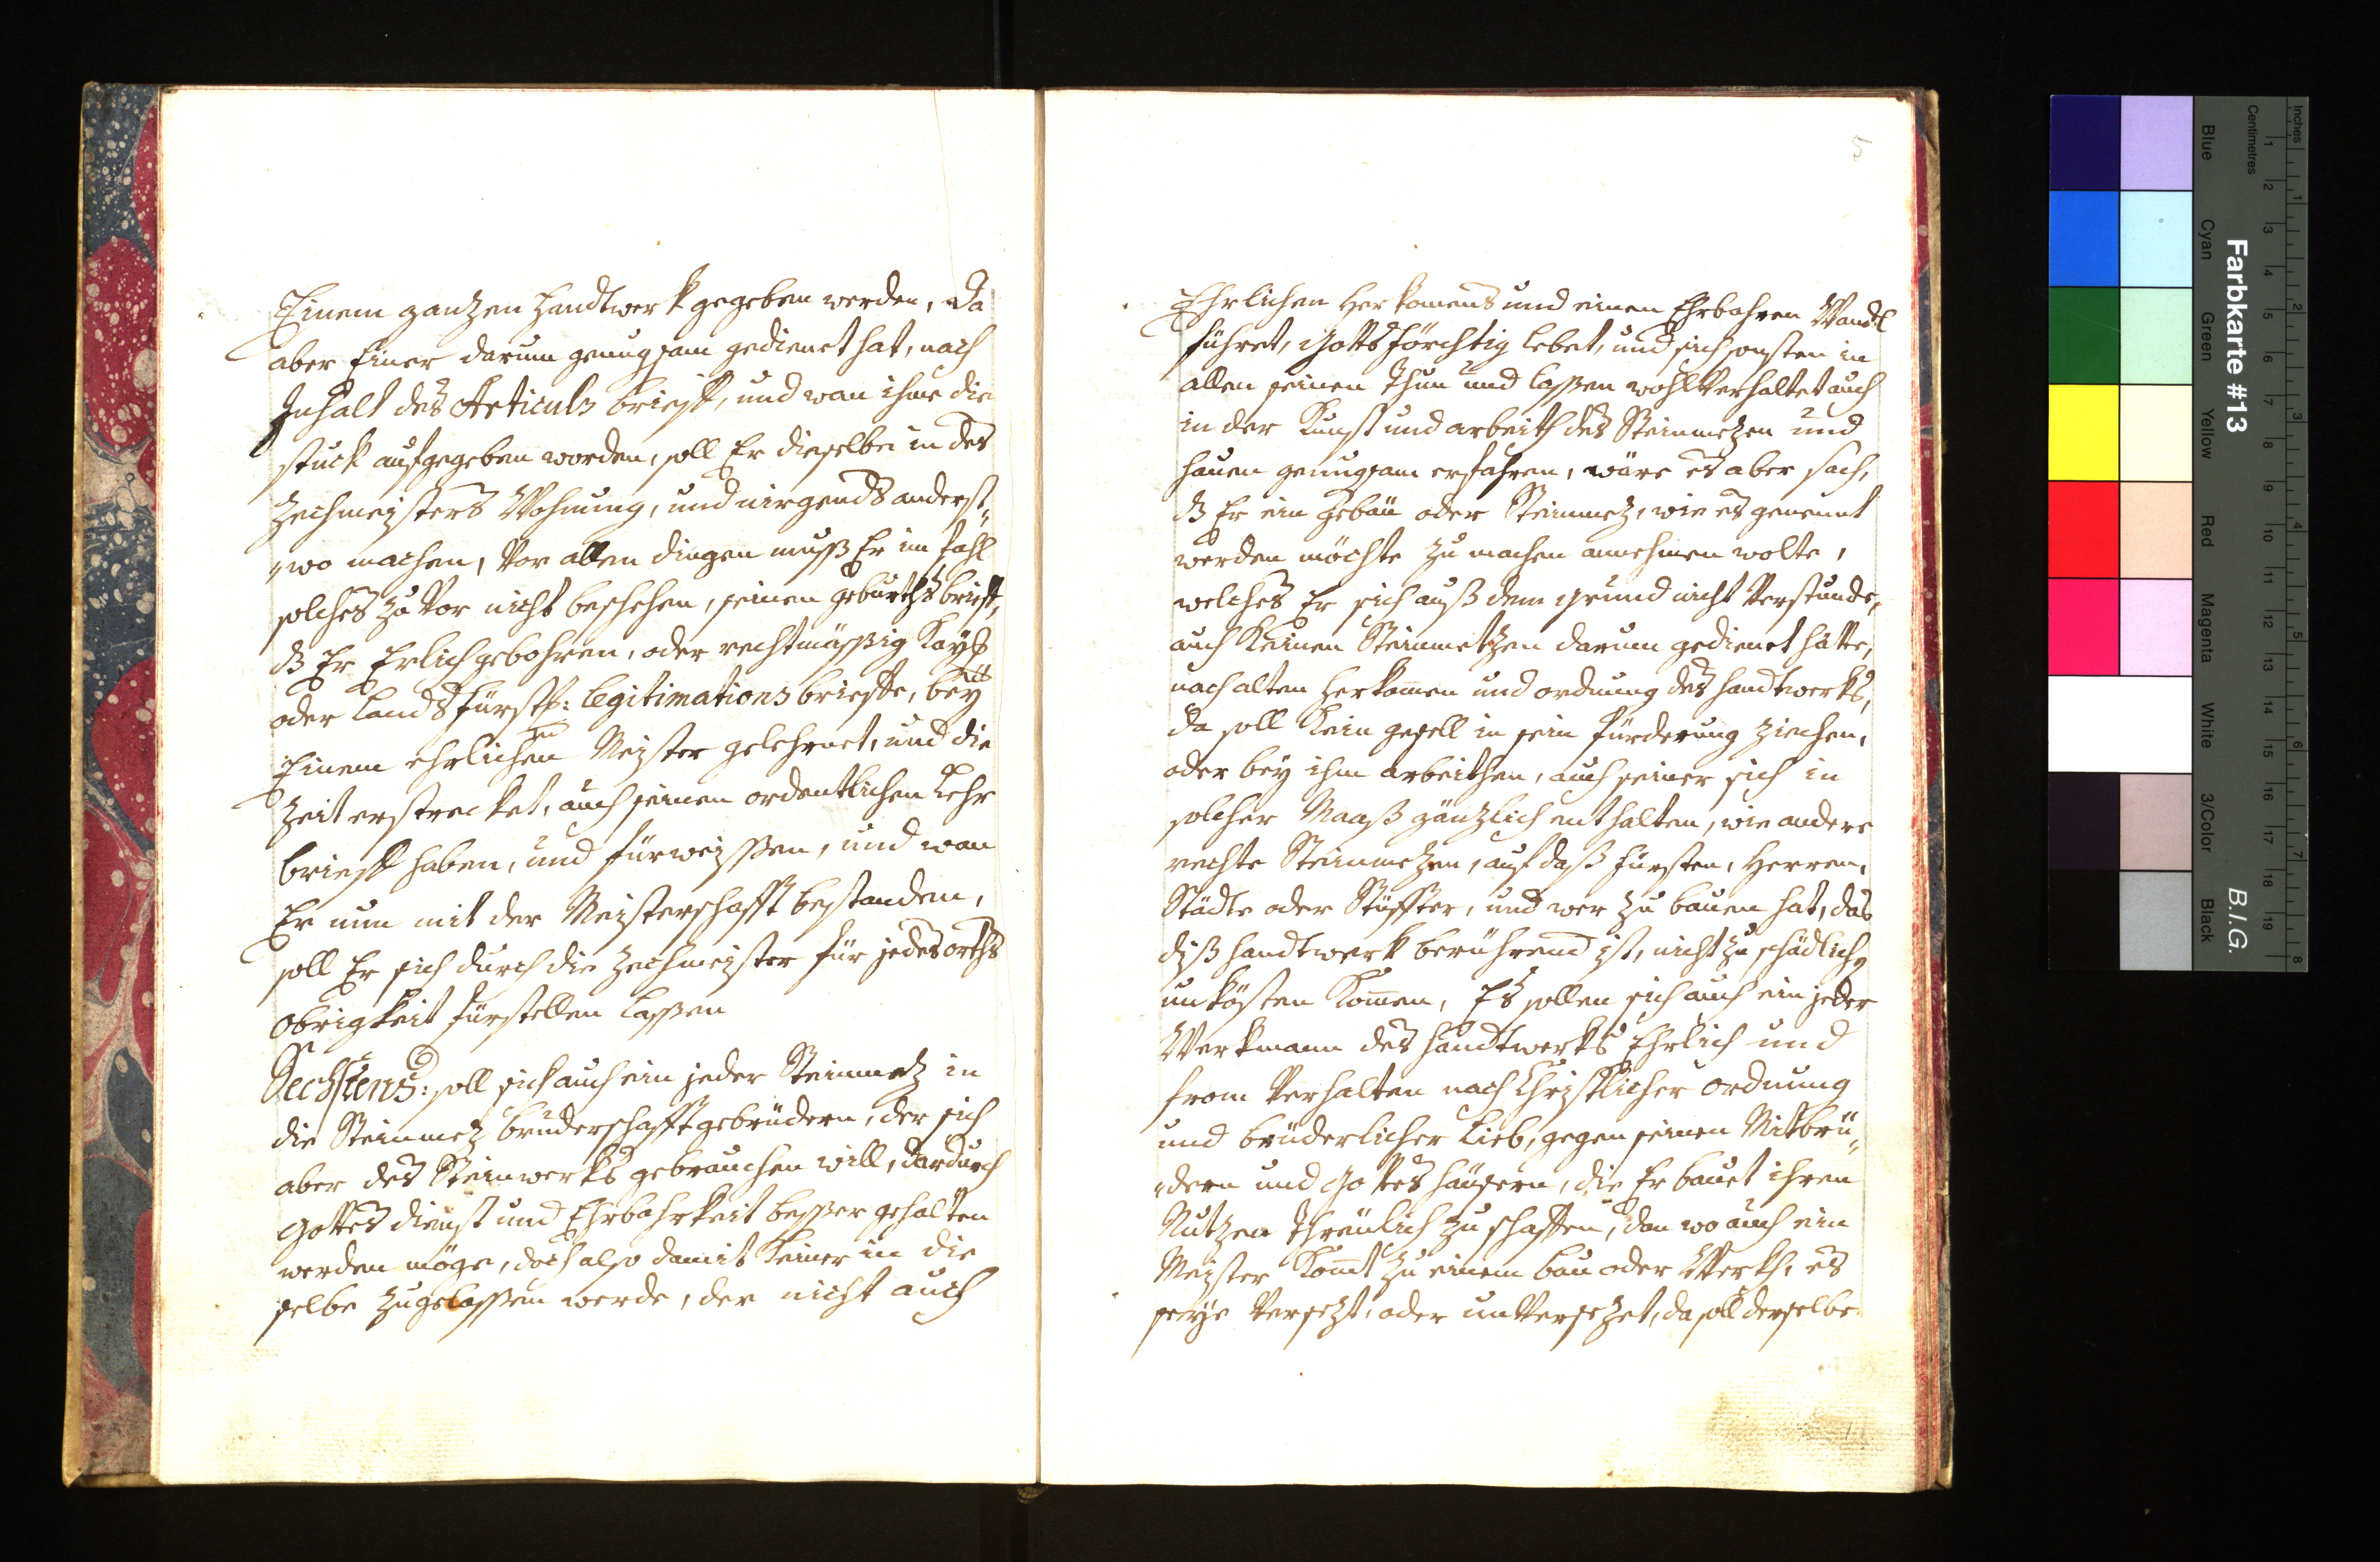 Einem ganzen Handtwerk gegeben werden, da
aber Einer darum genugsam gedienet hat, nach
Inhalt des Articuls brieff, und wan ihme die
stuck aufgegeben worden, soll Er dieselbe in des
Zechmeisters Wohnung, und nirgends anderst„
„wo machen, Vor allen dingen muß Er im fahl
solches zu Vor nicht beschehen, seinen geburths brieff,
dß Er Erlich gebohren, oder rechtmässig Kayß
oder Lands fürstl: legitimations brieffe, bey
Einem ehrlichen Meister gelehrnet, und die
Zeit erstrecket, auch seinen ordentlichen Lehr
brieff haben, und fürweissen, und wan
Er nun mit der Meisterschafft bestanden,
soll Er sich durch die Zechmeister für jedes orths
Obrigkeit fürstellen lassen
Sechstens: soll sich auch ein jeder Steinmetz in
die Steinmetz bruderschafft gebrüdern, der sich
aber des Steinwerks gebrauchen will, dardurch
Gottes dienst und Ehrbahrkeit besser gehalten
werden möge, doch also damit Keiner in die
selbe zugelassen werde, der nicht auch
5
Ehrlichen Herkomens und einen Ehrbahren Wandl
führet, Gottsförchtig lebet, und sich sonsten in
allen seinen Thun und lassen wohl Verhaltet auch
in der Kunst und arbeith des Steinmetzen und
hauen genugsam erfahren, wäre es aber sach,
dß Er ein gebäu oder Steinmetz, wie es genennt
werden möchte zu machen annehmen wolte,
welches Er sich auß dem grund nicht Verstunde,
auch Keinen Steinmetzen darum gedienet hätte,
nach alten Herkomen und ordnung des handtwerks,
da soll Kein gesell in sein fürderung ziechen,
oder bey ihm arbeithen, auch seiner sich in
solcher Maaß gänzlich enthalten, wie andere
rechte Steinmetzen, auf daß fürsten, Herren,
Städte oder Stüffter, und wer zu bauen hat, das
diß handtwerk berührend ist, nicht zu schädlich„
unkösten Komen, Es sollen sich auch ein jeder
Werkmann des handtwerks Ehrlich und
from Verhalten nach Christlicher ordnung
und brüderlicher Lieb, gegen seinen Mitbrü„
„dern und Gottes häusern, die Er bauet ihren
Nutzen Threulich zu schaffen, dan wo auch ein
Meister Komt zu einem bau oder Werkh, es
seye Versetzt, oder unVersetzet, da soll derselbe
Farbkarte #13
B.I.G.
Inches
Centimetres
Blue
Cyan
Green
Yellow
Red
Magenta
White
3/Color
Black